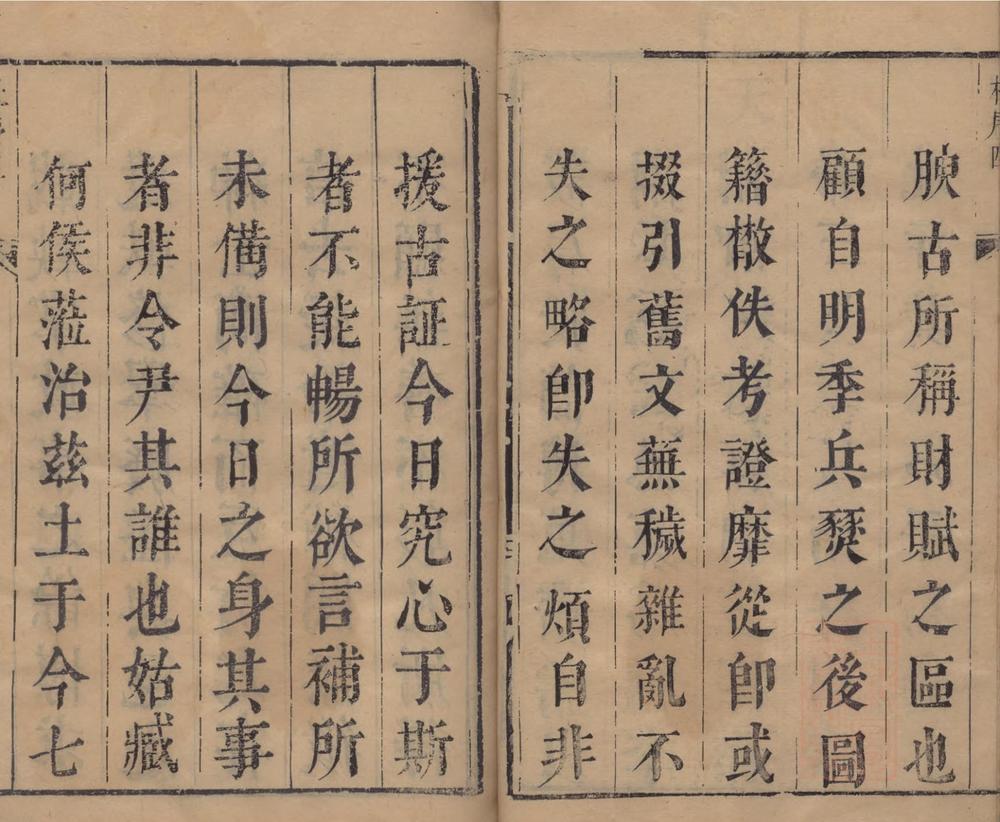 腴古所稱財賦之區也
顧自明季兵燹之後圖
籍散佚考證靡從卽或
掇引舊文蕪穢雜亂不
失之略卽失之煩自非
援古証今日究心于斯
者不能暢所欲言補所
未備則今日之身其事
者非令尹其誰也姑臧
何侯蒞治茲土于今七